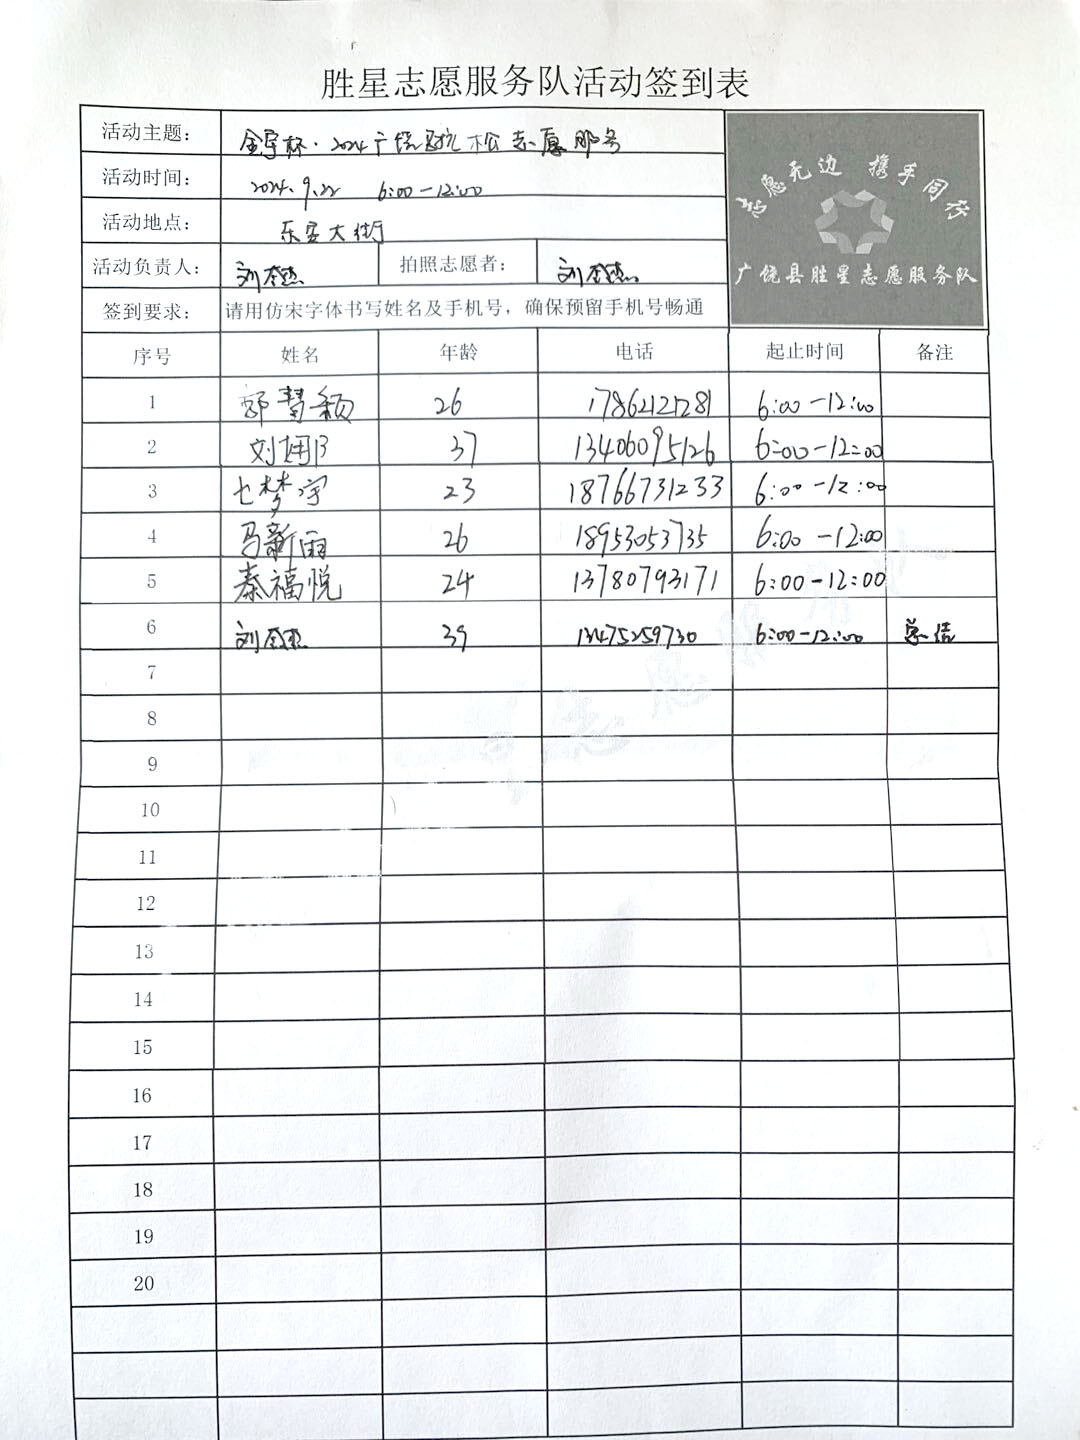 胜星志愿服务队活动签到表
志愿无边 携手同行
广饶县胜星志愿服务队
活动主题: 金宇杯·2024广饶 志愿服务
活动时间: 2024.9.22 6:00-12:00
活动地点: 乐安大街
活动负责人: 刘 杰 拍照志愿者: 刘 杰
签到要求: 请用仿宋字体书写姓名及手机号,确保预留手机号畅通
序号 姓名 年龄 电话 起止时间 备注
1 郭慧颖 26 17862121281 6:00-12:00
2 刘 37 13406095126 6:00-12:00
3 七梦宇 23 18766731233 6:00-12:00
4 马新雨 26 18953053735 6:00-12:00
5 秦福悦 24 13780793171 6:00-12:00
6 刘 杰 39 13475259730 6:00-12:00 总结
7
8
9
10
11
12
13
14
15
16
17
18
19
20